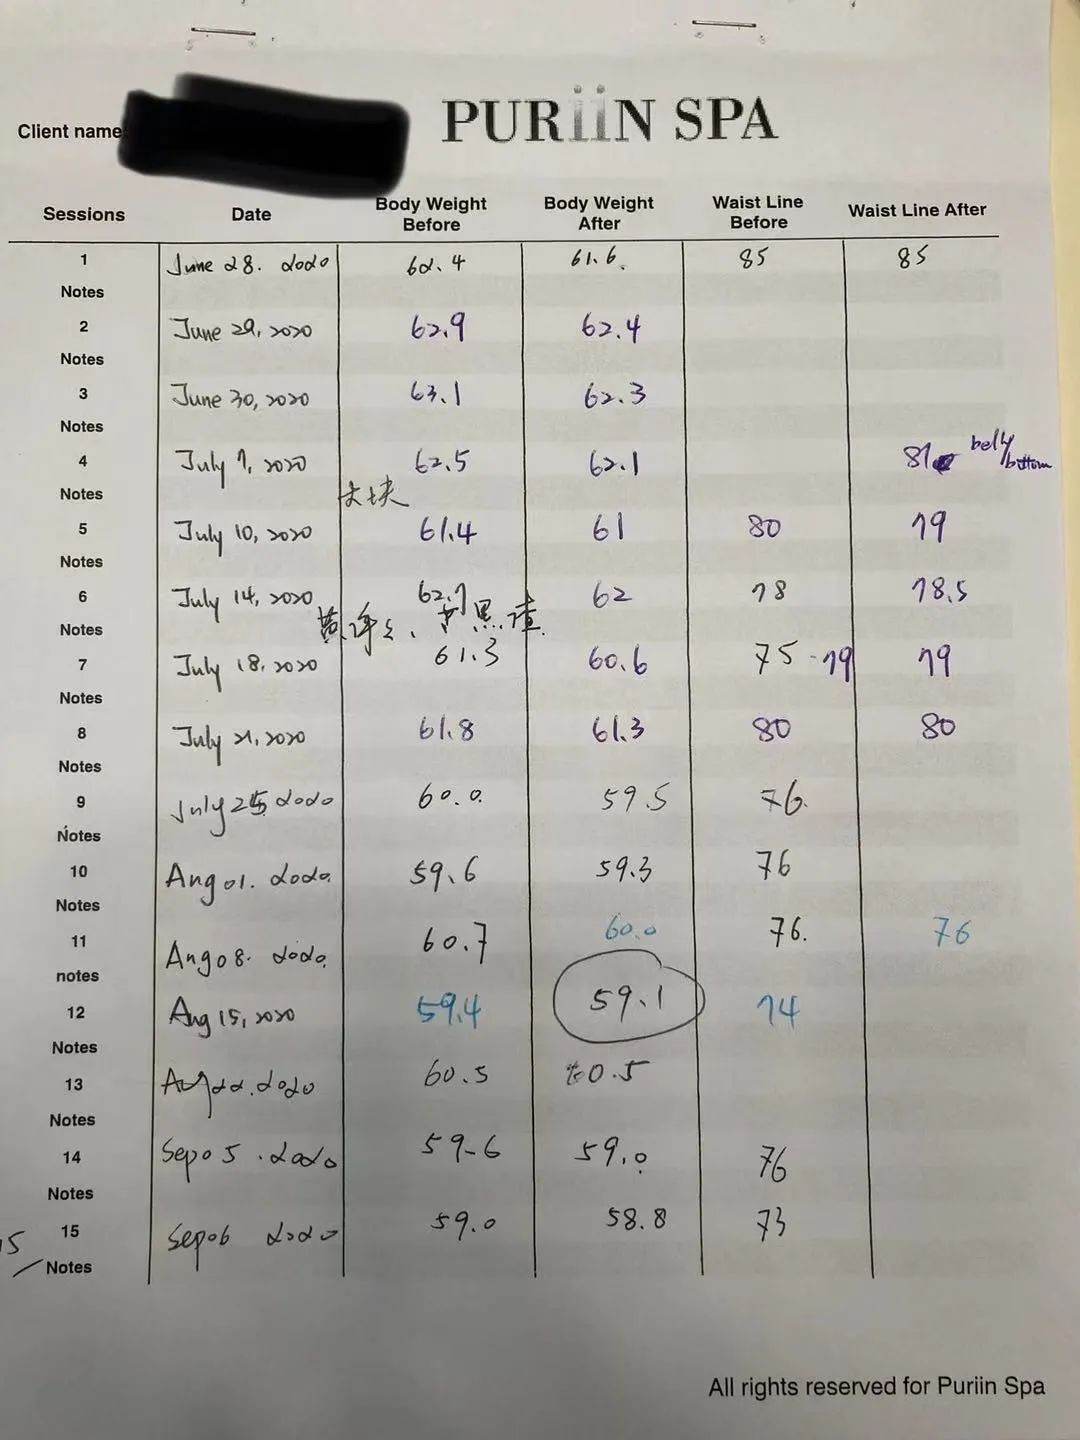 PURiiN SPA
Client name
Sessions Date Body Weight Before Body Weight After Waist Line Before Waist Line After
1 June 28. 2020 62.4 61.6. 85 85
Notes
2 June 29, 2020 62.9 62.4
Notes
3 June 30, 2020 63.1 62.3
Notes
4 July 7, 2020 62.5 62.1 81 belly buttom
Notes 大块
5 July 10, 2020 61.4 61 80 79
Notes
6 July 14, 2020 62.7 62 78 78.5
Notes 黑渣.
7 July 18, 2020 61.3 60.6 75-79 79
Notes
8 July 21, 2020 61.8 61.3 80 80
Notes
9 July 25 2020 60.0. 59.5 76.
Notes
10 Aug 01. 2020. 59.6 59.3 76
Notes
11 Aug 08. 2020. 60.7 60.0 76. 76
notes
12 Aug 15, 2020 59.4 59.1 74
Notes
13 Aug 22. 2020 60.5 60.5
Notes
14 Sep 05. 2020 59-6 59.0 76
Notes
15 Sep 06 2020 59.0 58.8 73
Notes
All rights reserved for Puriin Spa